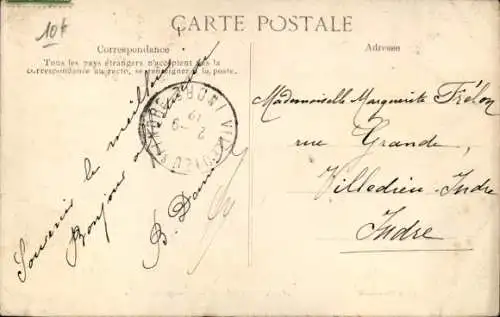 10f
CARTE POSTALE
Correspondance
Tous les pays étrangers n'acceptent pas la
correspondance au recto, se renseigner à la poste.
Adresse
Souvenir le meilleur
Bonjour
B.
VILLEDIEU
INDRE
2 - 9
19
Mademoiselle Marguerite Frélon
rue Grande,
Villedieu-Indre
Indre